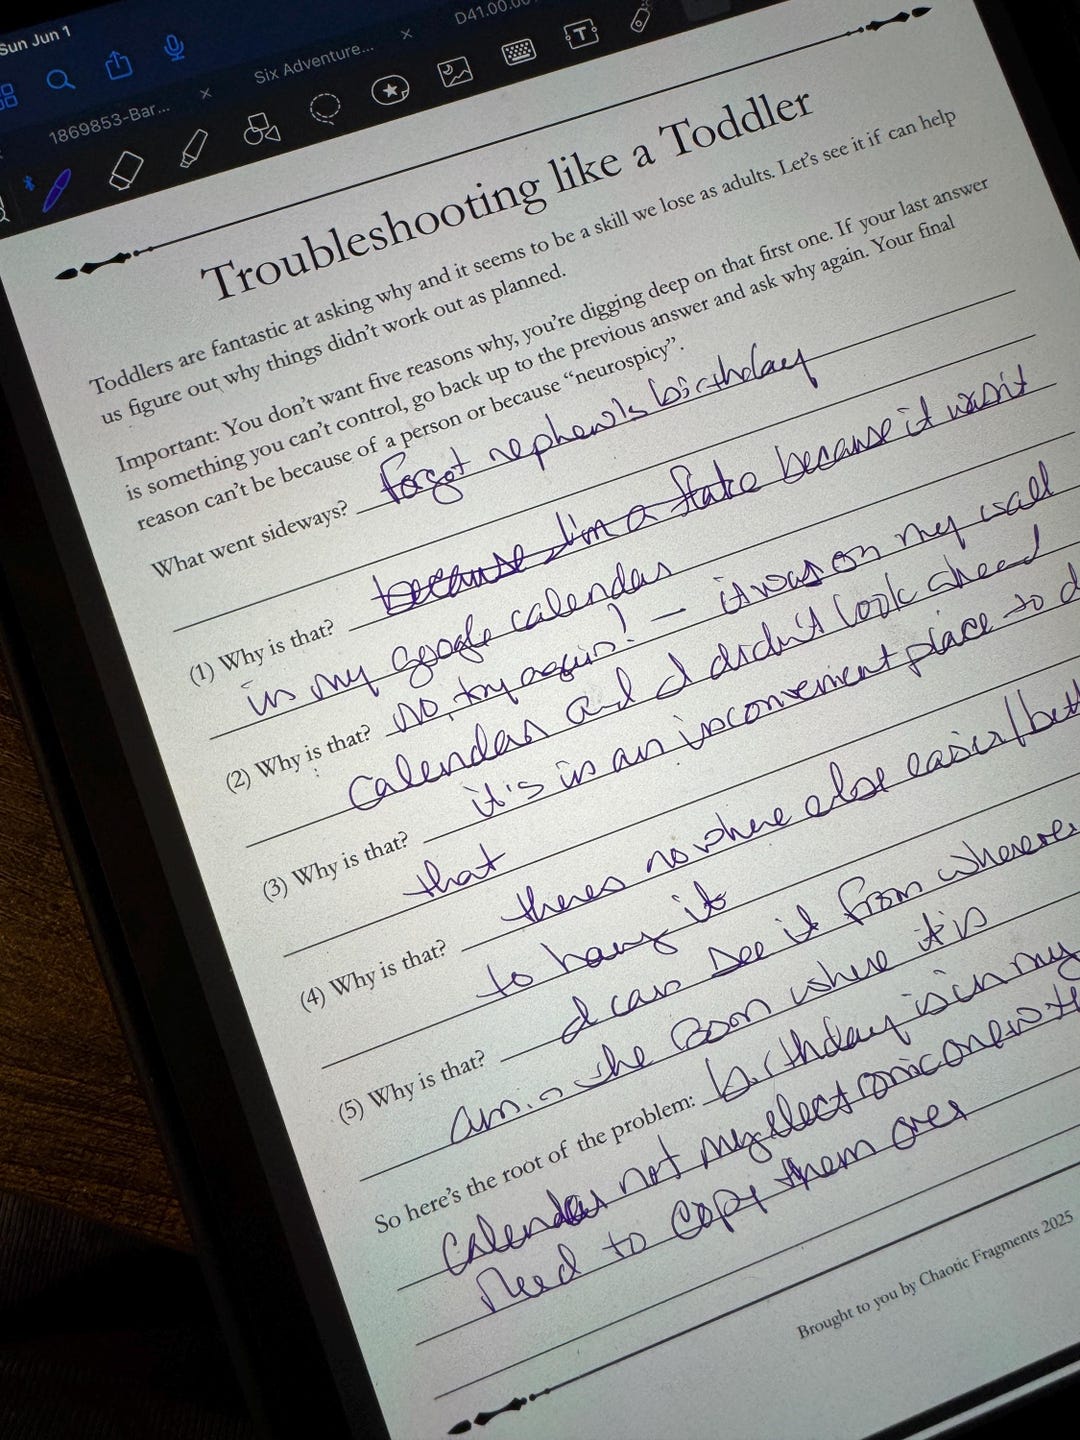 Sun Jun 1
1869853-Bar... ×
Six Adventure... ×
D41.00.00
Troubleshooting like a Toddler
Toddlers are fantastic at asking why and it seems to be a skill we lose as adults. Let's see it if can help
us figure out why things didn't work out as planned.
Important: You don't want five reasons why, you're digging deep on that first one. If your last answer
is something you can't control, go back up to the previous answer and ask why again. Your final
reason can't be because of a person or because "neurospicy".
What went sideways? forgot nephew's birthday
(1) Why is that? because I'm a flake because it wasn't
in my google calendar
(2) Why is that? No, try again! – it was on my wall
calendar and I didn't look ahead
(3) Why is that? it's in an inconvenient place to d
that
(4) Why is that? theres nowhere else easier/bett
to hang it
(5) Why is that? I can see it from wherever
am in the room where it is
So here's the root of the problem: birthday is in my
calendar not my electronic one
need to copy them over
Brought to you by Chaotic Fragments 2025